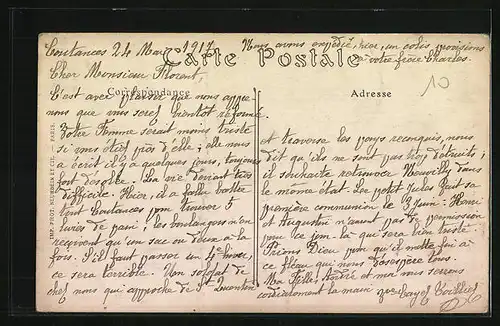 Coutances 24 Mai 1917
Nous avons expédié hier, un colis provisions
à votre frère Charles.
Carte Postale
Cher Monsieur Florent,
Correspondance
Adresse
10
C'est avec plaisir que nous appre
nons que vous serez bientôt réformé.
Votre Femme serait moins triste
si vous étiez près d'elle; elle nous
a écrit il y a quelques jours, toujours
fort désolée. La vie devient très
difficile. Hier, il a fallu battre
tout Coutances pour trouver 5
livres de pain; les boulangers n'en
reçoivent qu'un sac ou deux à la
fois. S'il faut passer un 4e hiver,
ce sera terrible. Un soldat de
chez nous qui approche de St Quentin
et traverse les pays reconquis, nous
dit qu'ils ne sont pas trop détruits;
il souhaite retrouver Neuvilly dans
le même état. Le petit Jules fait sa
première communion le 3 Juin. Henri
et Augustin n'auront pas de permission
pour ce jour-là qui sera bien triste.
Prions Dieu pour qu'il mette fin à
ce fléau qui nous désespère tous.
Ma Fille, André et moi vous serrons
cordialement la main
IMP. PHOT. NEURDEIN ET CIE. — PARIS